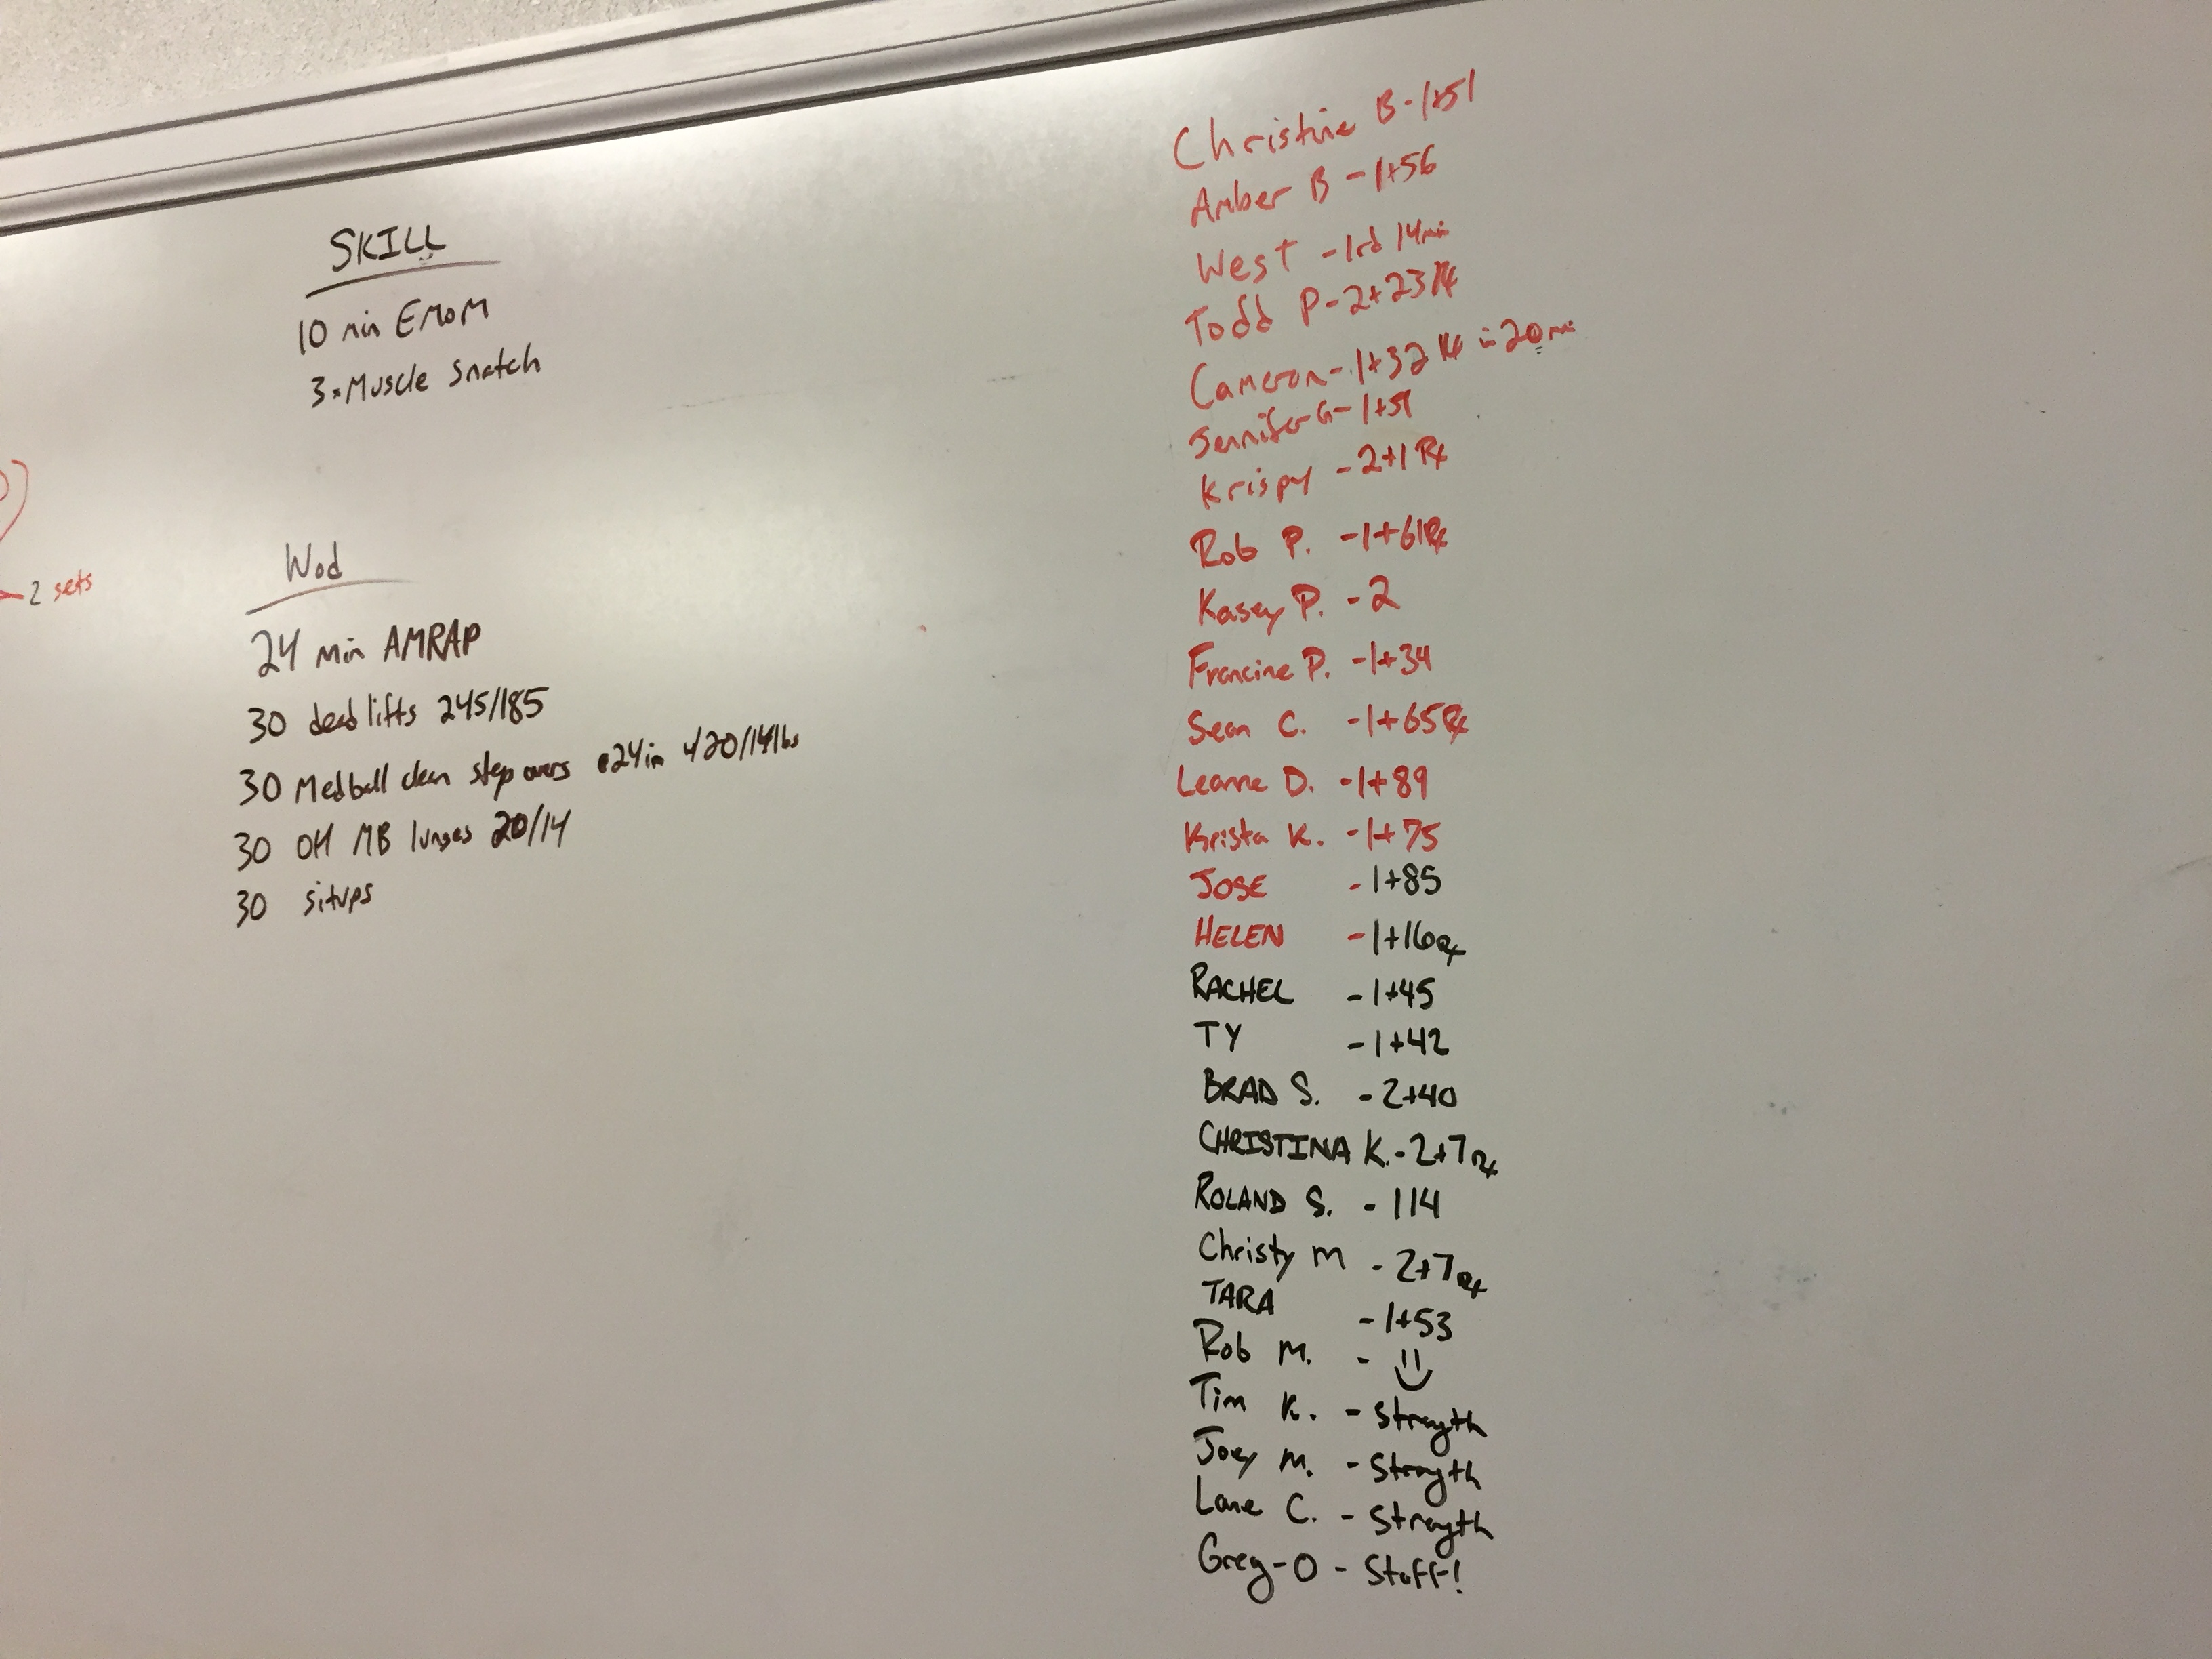 SKILL
10 min EMOM
3x Muscle Snatch
2 sets
Wod
24 min AMRAP
30 deadlifts 245/185
30 Medball clean step overs @24in w/20/14lbs
30 OH MB lunges 20/14
30 situps
Christine B - 1+51
Amber B - 1+56
West - 1rd 14min
Todd P - 2+23 Rx
Cameron - 1+32 Rx in 20 min
Jennifer G - 1+51
Krispy - 2+1 Rx
Rob P. - 1+61 Rx
Kasey P. - 2
Francine P. - 1+34
Sean C. - 1+65 Rx
Leanne D. - 1+89
Krista K. - 1+75
JOSE - 1+85
HELEN - 1+16 Rx
RACHEL - 1+45
TY - 1+42
BRAD S. - 2+40
CHRISTINA K. - 2+7 Rx
ROLAND S. - 114
Christy M - 2+7 Rx
TARA - 1+53
Rob M. -
Tim K. - Strength
Joey M. - Strength
Lane C. - Strength
Greg-O - Stuff!